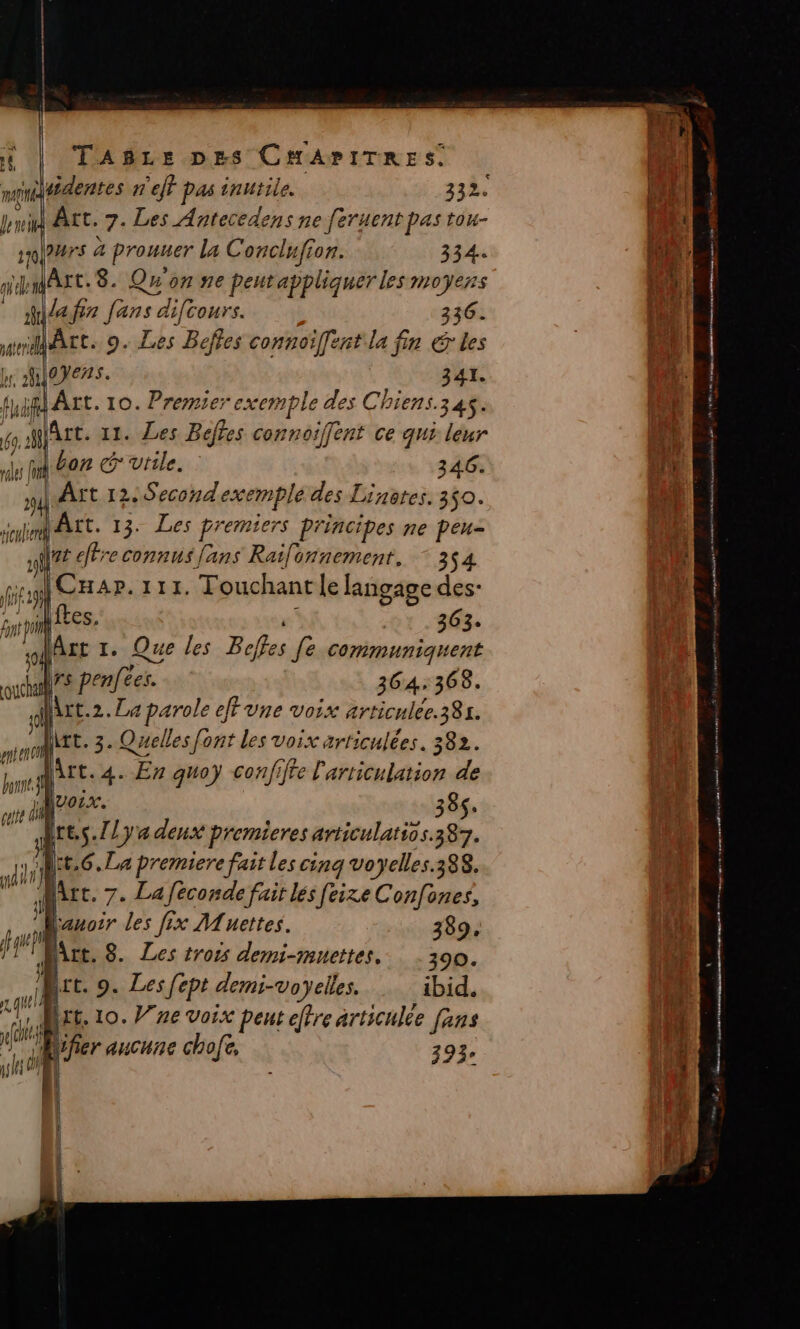 TABLE DES CHAPITRES.
identes n'eſt pas inutile. 332.
Art. 7. Les Antecedens ne ſeruent pas tou-
ours à prouuer la Concluſion. 334.
Art. 8. Qu'on ne peut appliquer les moyens
la fin ſans diſcours. 336.
Art. 9. Les Beſtes connoiſſent la fin & les
oyens. 341.
Art. 10. Premier exemple des Chiens. 345.
Art. 11. Les Beſtes connoiſſent ce qui leur
bon & vtile. 346.
Art 12. Second exemple des Linotes. 350.
Art. 13. Les premiers principes ne peu-
nt eſtre connus ſans Raiſonnement. 354
CHAP. III. Touchant le langage des
ſtes. 363.
Art 1. Que les Beſtes ſe communiquent
rs penſées. 364. 368.
Art. 2. La parole eſt vne voix articulée. 381.
Art. 3. Quelles ſont les voix articulées. 382.
Art. 4. En quoy conſiſte l'articulation de
voix. 385.
Art. 5. Il y a deux premieres articulatiõs. 387.
Art. 6. La premiere fait les cinq voyelles. 388.
Art. 7. La ſeconde fait les ſeize Conſones,
ſauoir les ſix Muettes. 389.
Art. 8. Les trois demi-muettes. 390.
Art. 9. Les ſept demi-voyelles. ibid.
Art. 10. Vne voix peut eſtre articulée ſans
ifier aucune choſe. 393.